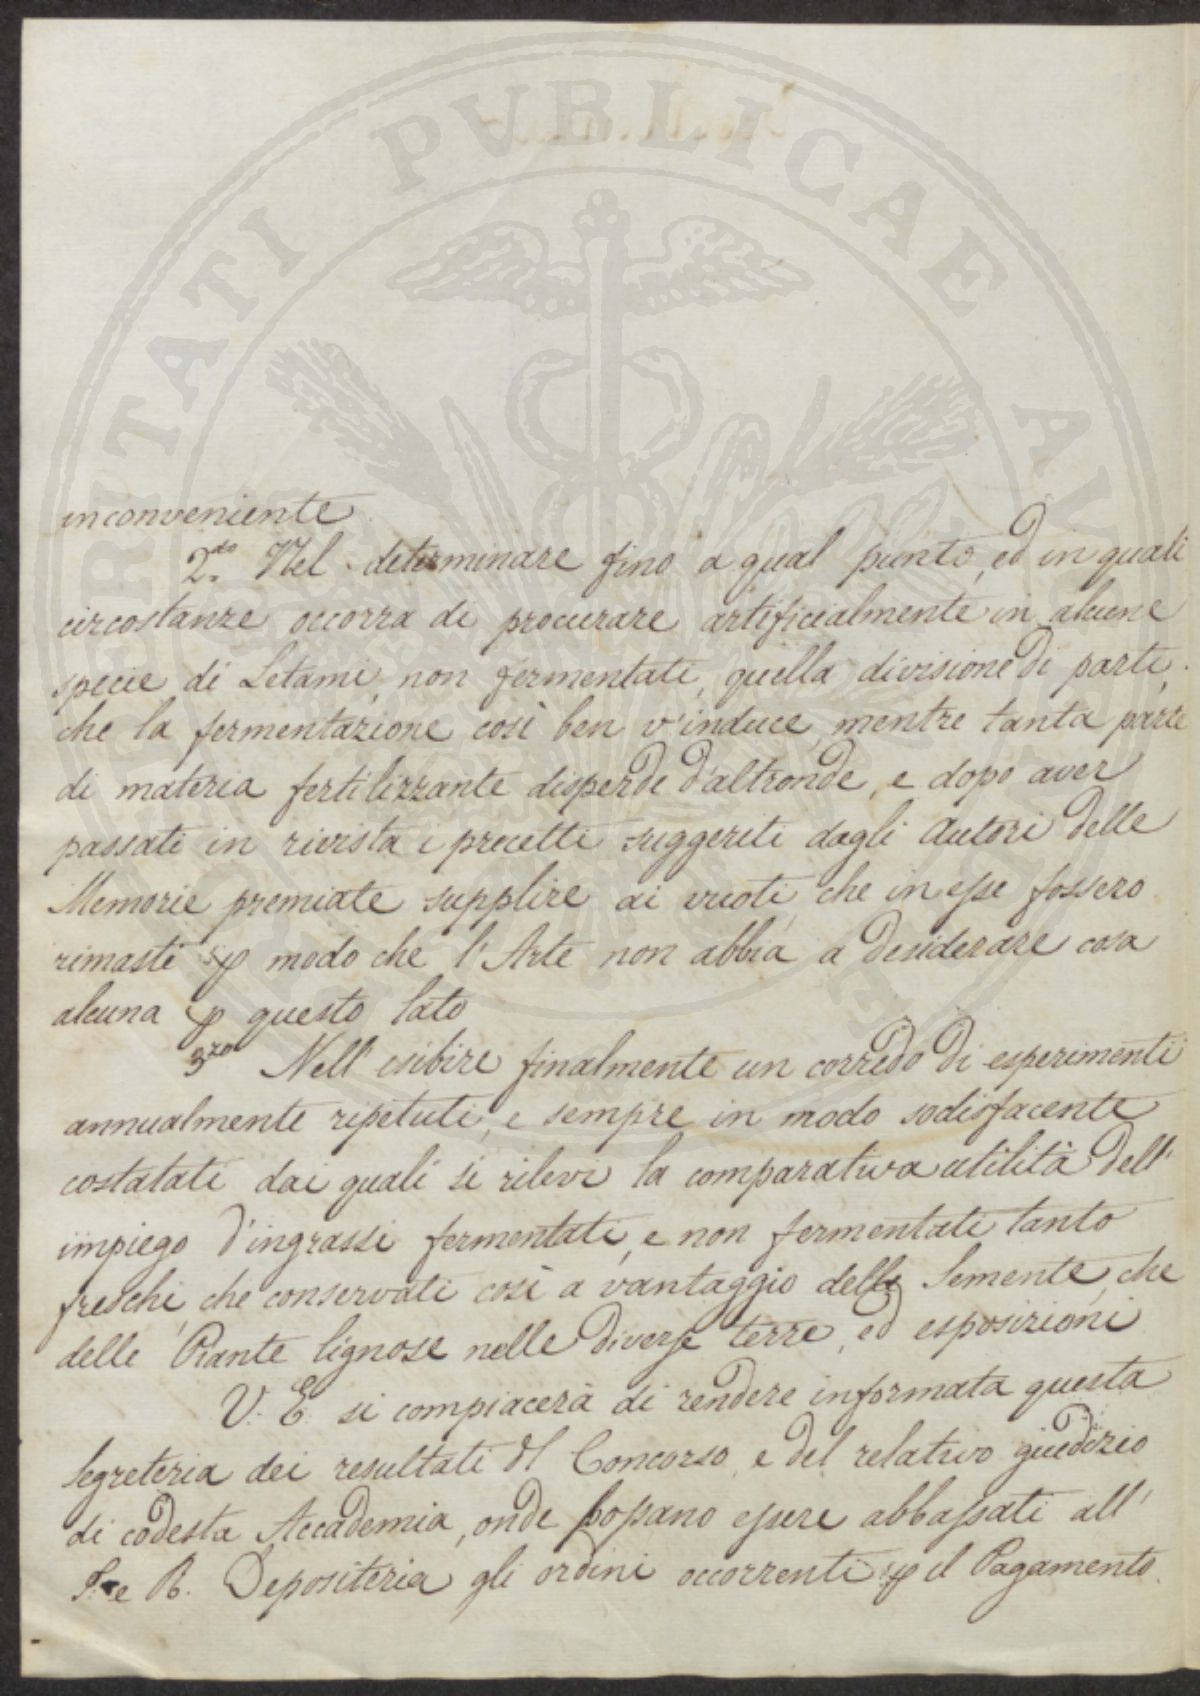 PROSPERITATI PUBLICAE AUGENDAE
inconveniente.
2.do Nel determinare fino a qual punto, ed in quali
circostanze occorra di procurare artificialmente in alcune
specie di Letami, non fermentati, quella divisione di parti,
che la fermentazione così ben v'induce, mentre tanta parte
di materia fertilizzante disperde d'altronde, e dopo aver
passati in rivista i precetti suggeriti dagli Autori delle
Memorie premiate supplire ai vuoti, che in esse fossero
rimasti p modo che l'Arte non abbia a desiderare cosa
alcuna p questo lato
3.zo Nell'esibire finalmente un corredo di esperimenti
annualmente ripetuti, e sempre in modo sodisfacente
costatati dai quali si rilevi la comparativa utilità dell'
impiego d'ingrassi fermentati, e non fermentati tanto
freschi, che conservati così a vantaggio delle Semente, che
delle Piante lignose nelle diverse terre, ed esposizioni
V. E. si compiacerà di rendere informata questa
Segreteria dei resultati dl Concorso, e del relativo giudizio
di codesta Accademia, onde possano essere abbassati all'
I. e R. Depositeria gli ordini occorrenti p il Pagamento.